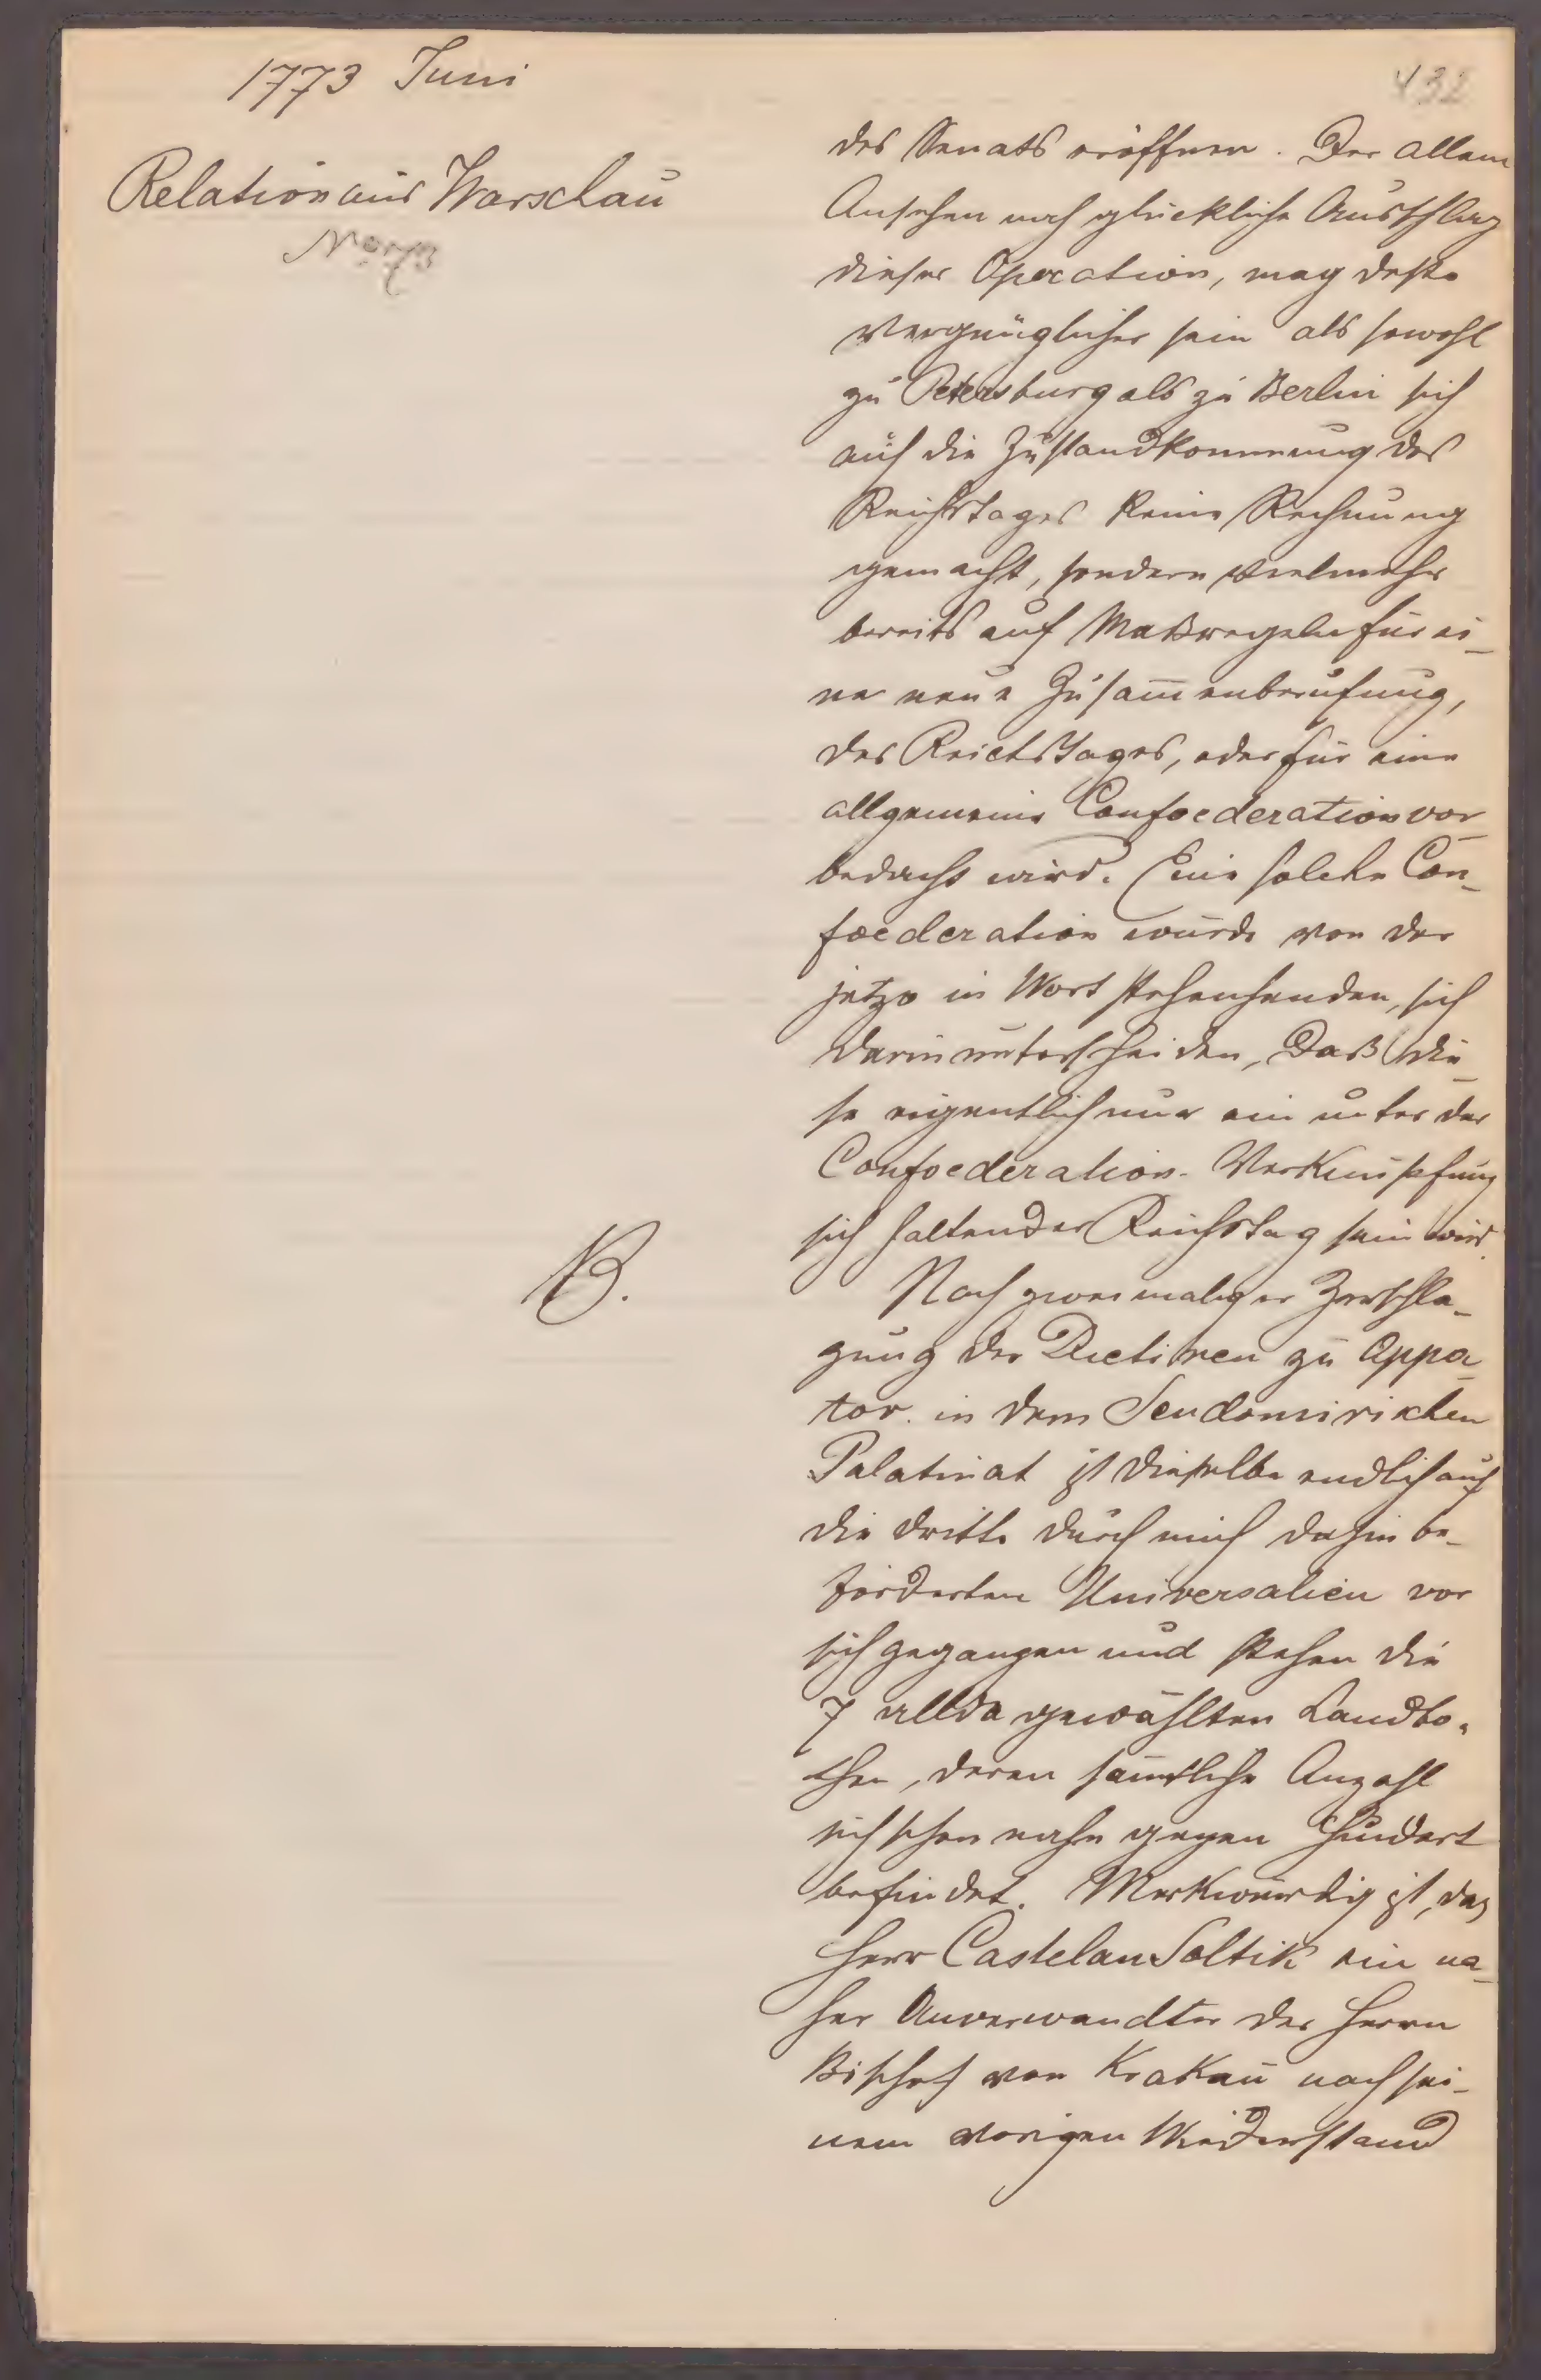 1773 Juni
432
Relation aus Warschau
No 73
des Senats eröffnen. Der allem
Ansehen nach glückliche Ausschlag
dieser Operation, mag desto
vergnüglicher sein als sowohl
zu Petersburg als zu Berlin sich
auf die Zustandkommung des
Reichstages keine Rechnung
gemacht, sondern vielmehr
bereits auf Maßregeln für ei-
ne neue Zusammenberufung,
des Reichstages, oder für eine
allgemeine Confoederation vor-
bedacht wird. Eine solche Con-
foederation würde von der
jetzo in Wort stehenhenden, sich
darin unterscheiden, Daß die-
se eigentlich nur ein unter der
Confoederation-Verknüpfung
sich haltender Reichstag sein wird.
B.
Nach zweimaliger Zerschla-
gung der Dietinen zu Oppa-
tov. in dem Sendomirischen
Palatinat ist dieselbe endlich auf
die dritte durch mich dahin be-
förderten Universalien vor
sich gegangen und stehen die
7 allda gewählten Landbo-
then, deren sämtliche Anzahl
sich schon nahe gegen Hundert
befindet. Merkwürdig ist, daß
Herr Castelan Soltik ein na-
her Anverwandter des Herrn
Bischof von Krakau nach sei-
nem vorigen Wiederstand